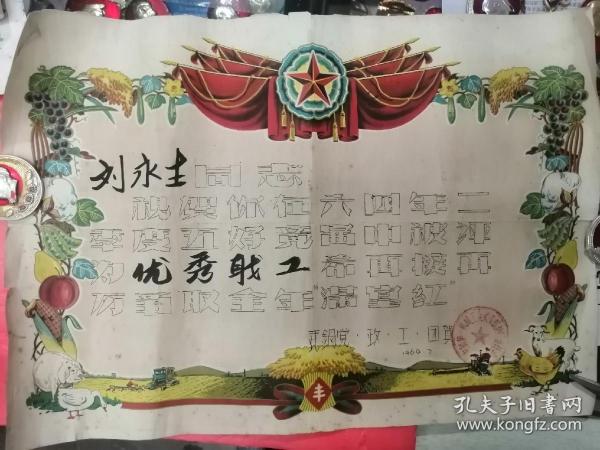 刘永生同志
祝贺你在六四年二
季度五好竞涌中被评
为优秀职工希再接再
厉争取全年“满堂红”
党·政·工·团
1964.7
丰
孔夫子旧书网
www.kongfz.com